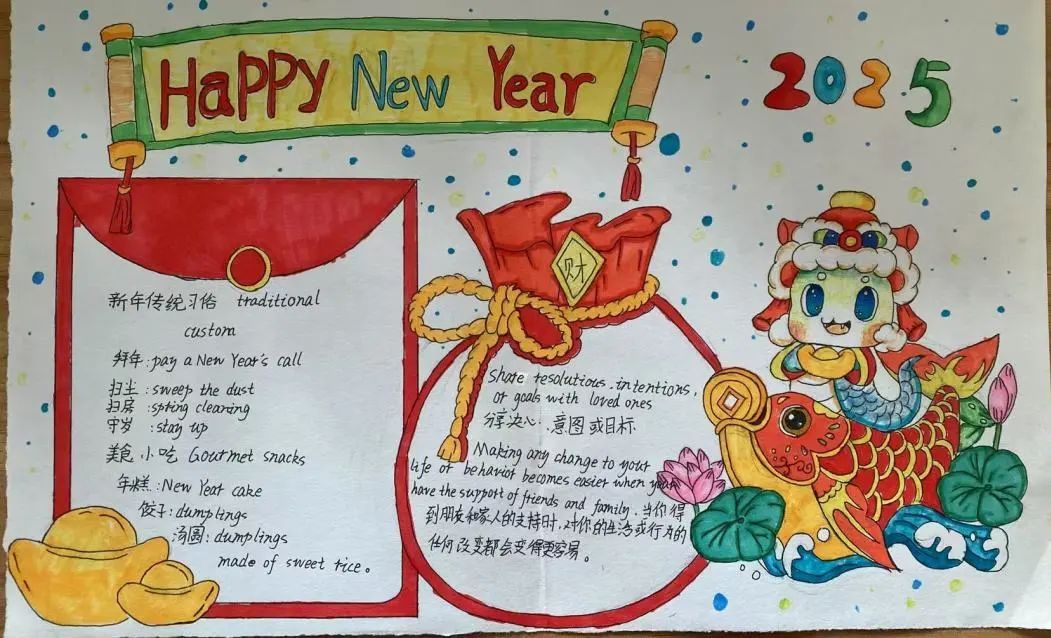 Happy New Year
2025
新年传统习俗 traditional
custom
拜年:pay a New Year's call
扫尘:sweep the dust
扫房:spring cleaning
守岁:stay up
美食小吃 Gourmet snacks
年糕:New Year cake
饺子:dumplings
汤圆:dumplings
made of sweet rice。
财
Share resolutious.intentions,
or goals with loved ones
分享决心..意图或目标
Making any change to your
life or behavior becomes easier when your
have the support of friends and family.当你得
到朋友和家人的支持时,对你的生活或行为的
任何改变都会变得更容易。